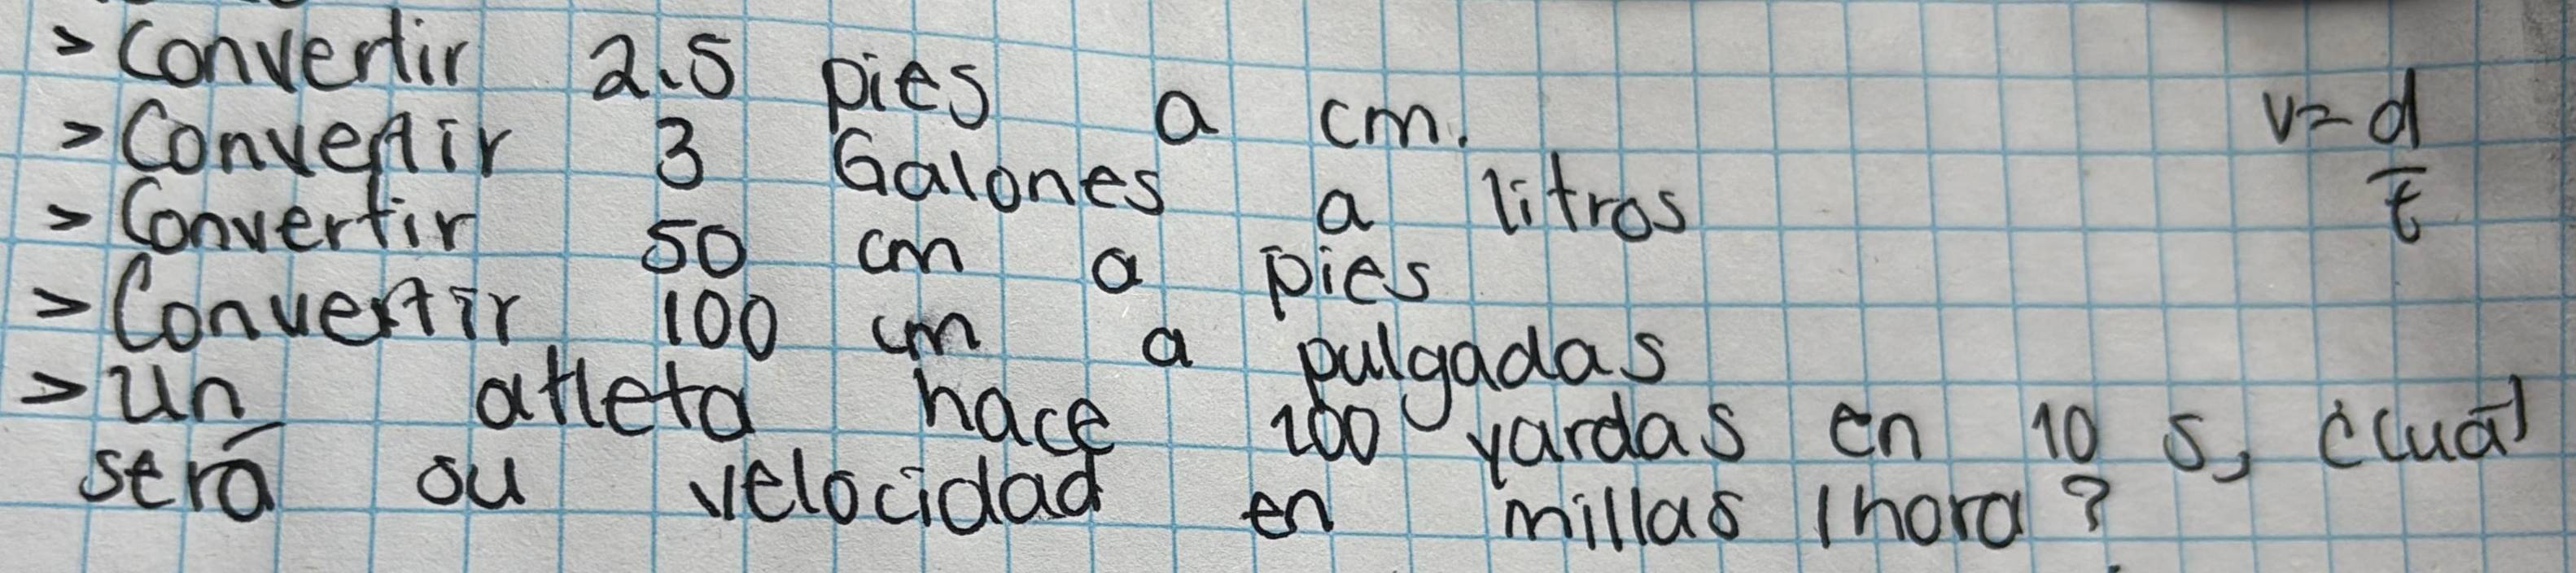 > Convertir 2.5 pies a cm.
> Convertir 3 Galones a litros
> Convertir 50 cm a pies
> Convertir 100 cm a pulgadas
> Un atleta hace 100 yardas en 10 s, ¿cuál
será su velocidad en millas / hora?
v = d
t